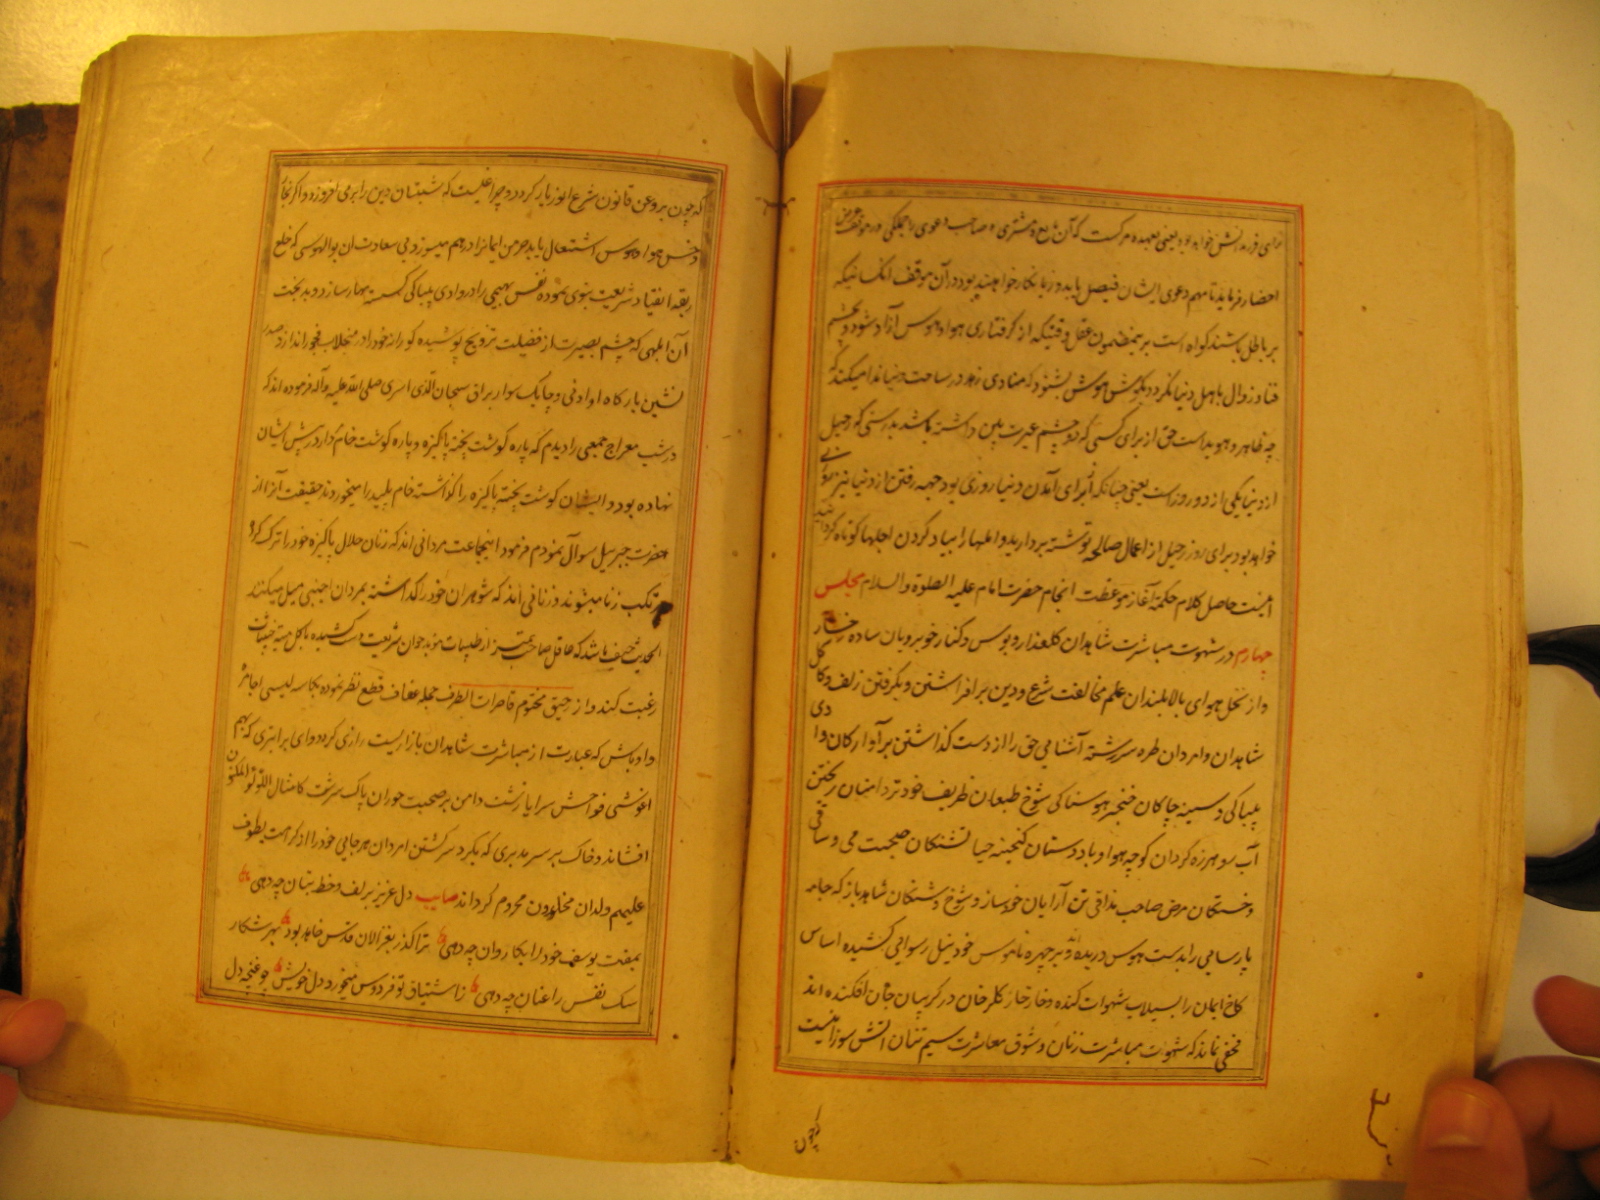 برای فرزندانش خواهد بود یعنی بعهده مرکست که آن بایع و مشتری و صاحب دعوی را جملکی در موقف عرض
احضار فرماید تا مهم دعوی ایشان فیصل یابد و زیانکار خواهند بود در آن موقف انکسانیکه
بر باطل باشند کواه است برینمضمون عقل وقتیکه از کرفتاری هوا و هوس آزاد شود و بچشم
فنا و زوال باهل دنیا نکرد و بکوش هوش بشنود که منادی زهد در ساحت دنیا ندا میکند که
چه ظاهر و هویداست حق از برای کسی که دو چشم عبرت بین داشته باشد بدرستی که رحیل
از دنیا یکی از دو روز است یعنی چنانکه از برای آمدن دنیا روزی بود جهه رفتن از دنیا نیز روزی
خواهد بود برای روز رحیل از اعمال صالحه توشه بردارید و املها را بیاد کردن اجلها کوتاه کردانید
اینست حاصل کلام حکمة آغاز موعظت انجام حضرت امام علیه الصلوة والسلام مجلس
چهارم در شهوت مباشرت شاهدان کلعذار و بوس و کنار خوبرویان ساده رخسار
و از نخل هوای بالابلندان علم مخالفت شرع و دین برافراشتن و بکرفتن زلف و کاکل
شاهدان و امردان طره سررشته آشنایی حق را از دست کذاشتن بر آوارکان وادی
بیباکی و سینه چاکان خنجر هوسناکی شوخ طبعان ظریف خود تردامنان ریختن
آب رو هرزه کردان کوچه هوا و باد دوستان کنجینه حیا تشنکان صحبت می و ساقی
و خستکان مرض صاحب مذاقی تن آرایان خودساز و شوخ و شنکان شاهدباز که جامه
پارسایی را بدست هوس دریده و بر چهره ناموس خود نیل رسوایی کشیده اساس
کاخ ایمان را بسیلاب شهوات کنده و خارخار کلرخان در کریبان جان افکنده اند
مخفی نماند که شهوت مباشرت زنان و شوق معاشرت سیم تنان آتش سوزانیست
که چون
که چون بروغن قانون شرع انور یار کردد چراغیست که شبستان دین را برمی افروزد و اگر بخار
و خس هوا و هوس اشتعال یابد خرمن ایمانرا درهم میسوزد بی سعادت ان بوالهوسی که خلع
ربقه انقیاد شریعت نبوی نموده نفس بهیمی را در وادی بیباکی کسسته مهار سازد و بدبخت
آن ابلهی که چشم بصیرت از فضیلت تزویج پوشیده کورانه خود را در منجلاب فجور اندازد صدر
نشین بارکاه او ادنی و چابک سوار براق سبحان الذی اسری صلی الله علیه وآله فرموده اند که
در شب معراج جمعی را دیدم که پاره کوشت پخته پاکیزه و پاره کوشت خام مردار در پیش ایشان
نهاده بود و ایشان کوشت پخته پاکیزه را کذاشته خام پلید را میخوردند حقیقت آنرا از
حضرت جبرییل سوآل نمودم فرمود اینجماعت مردانی اند که زنان حلال پاکیزه خود را ترک کرده
مرتکب زنا میشوند و زنانی اند که شوهران خود را کذاشته بمردان اجنبی میل میکنند
الحدیث حیف باشد که عاقل صاحب تمیز از طیبات موید جوان شریعت دست کشیده باکل میته خبیثات
رغبت کند و از رحیق مختوم قاصرات الطرف جمله عفاف قطع نظر نموده بکاسه لیسی اجامره
و اوباش که عبارت از مباشرت شاهدان بازاریست راضی کردد وای بر ابتری که بهم
اغوشی فواحش سراپا زشت دامن بر صحبت حوران پاک سرشت کامثال اللؤلؤ المکنون
افشاند و خاک بر سر مدبری که بکرد سر کشتن امردان هرجایی خود را از کرامت یطوف
علیهم ولدان مخلدون محروم کرداند صایب دل عزیز بزلف و خط بتان چه دهی
بمفت یوسف خود را بکاروان چه دهی ترا کذر بغزالان قدس خاهد بود بهر شکار
سک نفس را عنان چه دهی ز اشتیاق تو فردوس میخورد دل خویش چو غنچه دل